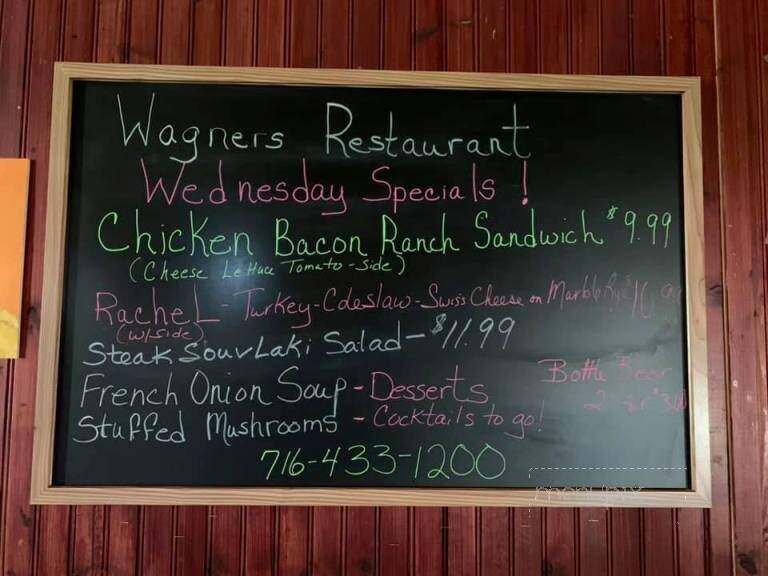 Wagners Restaurant
Wednesday Specials!
Chicken Bacon Ranch Sandwich $9.99
(Cheese Lettuce Tomato-Side)
Rachel - Turkey-Coleslaw-Swiss Cheese on Marble Rye
(w/side)
Steak Souvlaki Salad - $11.99
French Onion Soup - Desserts
Bottle Beer
Stuffed Mushrooms - Cocktails to go!
716-433-1200